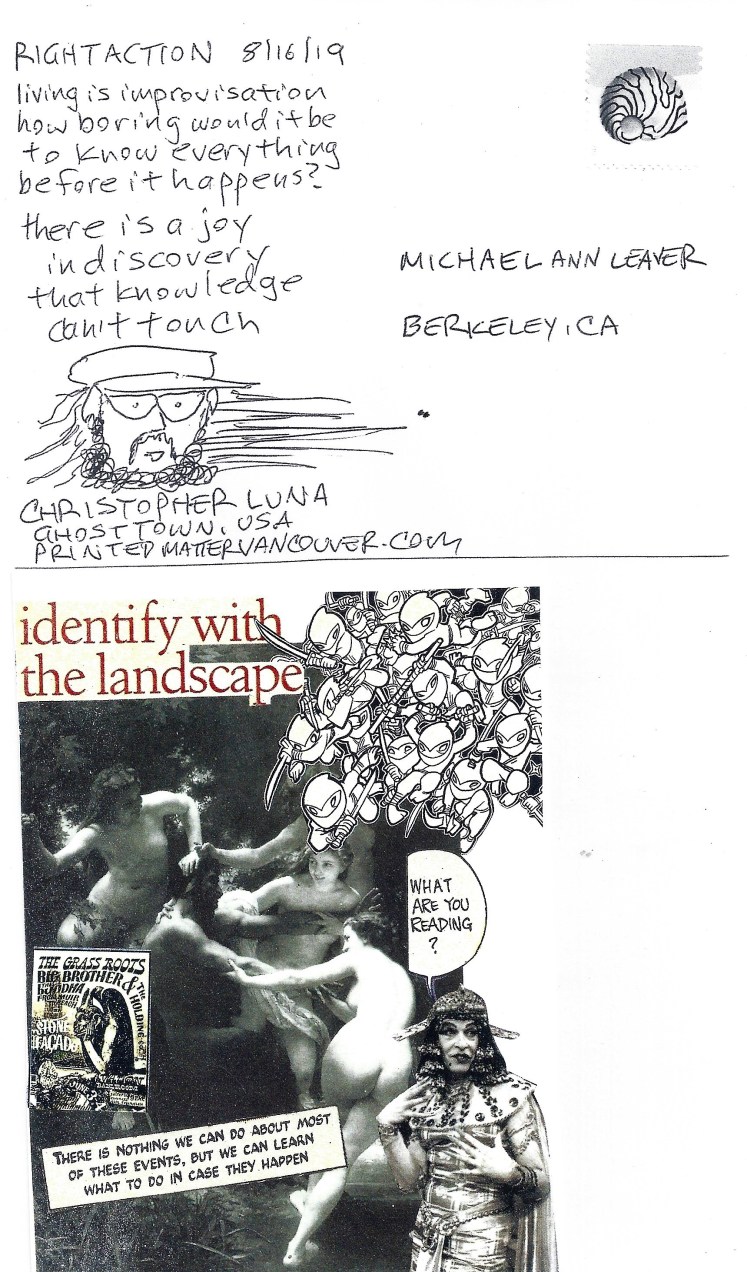 RIGHT ACTION 8/16/19
living is improvisation
how boring would it be
to know everything
before it happens?
there is a joy
in discovery
that knowledge
can't touch
MICHAEL ANN LEAVER
BERKELEY, CA
CHRISTOPHER LUNA
GHOST TOWN, USA
PRINTEDMATTERVANCOUVER.COM
identify with
the landscape
WHAT
ARE YOU
READING
?
THE GRASS ROOTS
BIG BROTHER &
THE HOLDING CO.
BUDDHA
STONE
FACADE
THERE IS NOTHING WE CAN DO ABOUT MOST
OF THESE EVENTS, BUT WE CAN LEARN
WHAT TO DO IN CASE THEY HAPPEN